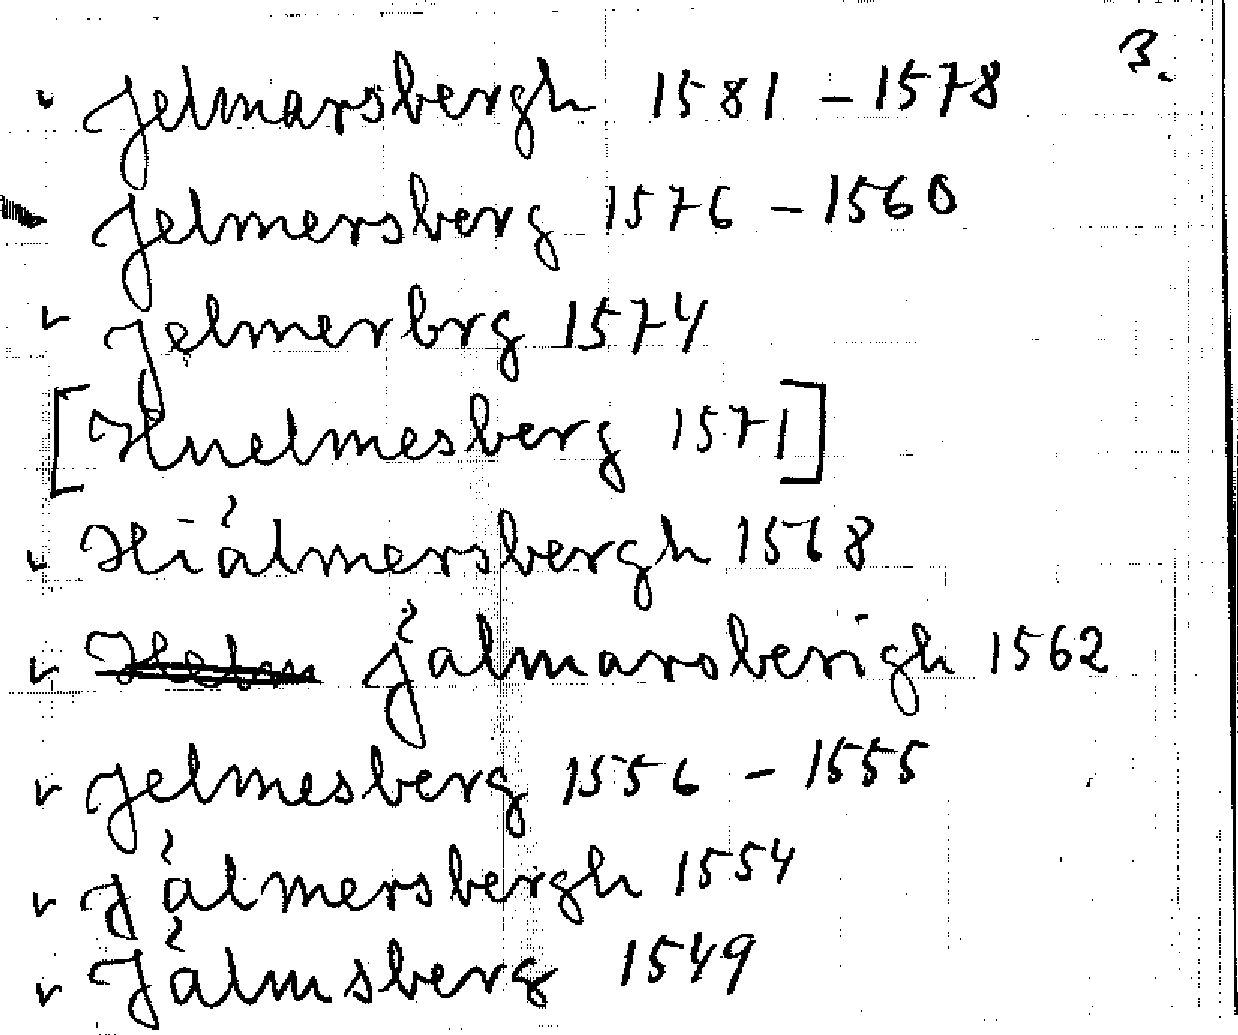 3.
Jelmarsbergh 1581 – 1578
Jelmersberg 1576 – 1560
Jelmerbrg 1574
[Huelmesberg 1571]
Hiålmersbergh 1568
Jålmarsberigh 1562
Jelmesberg 1556 – 1555
Jålmersbergh 1554
Jålmsberg 1549